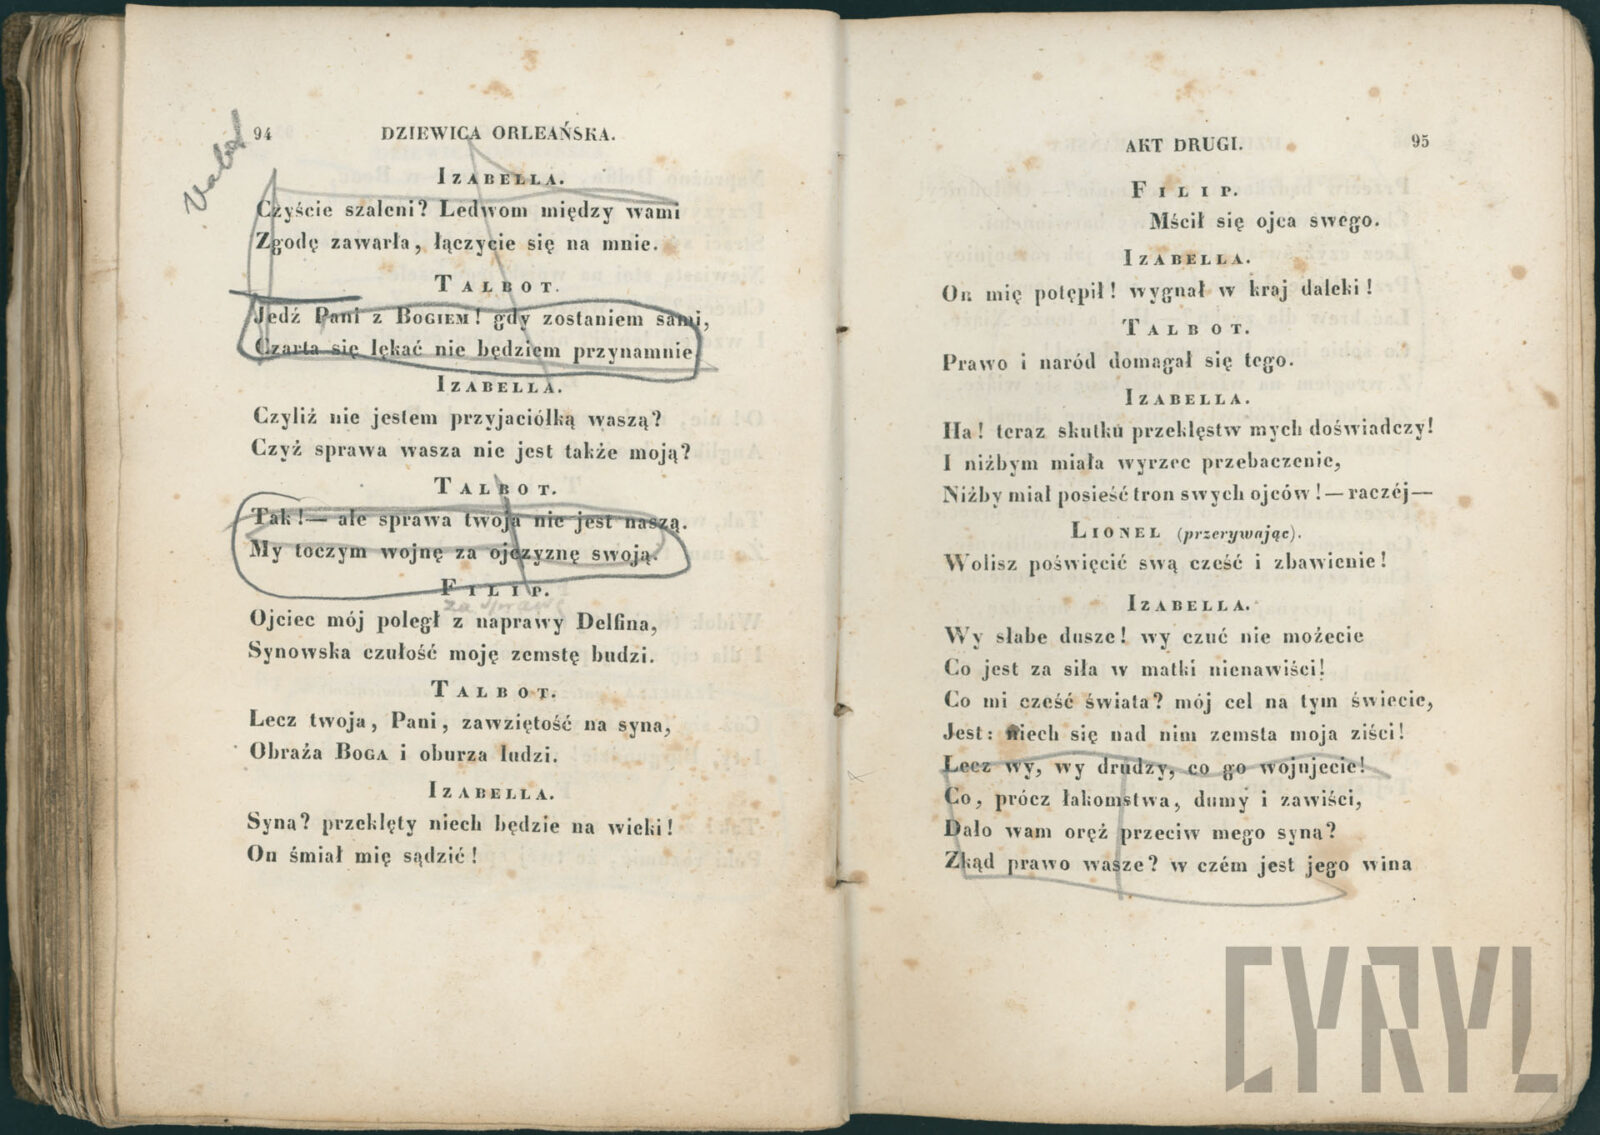 94
DZIEWICA ORLEAŃSKA.
IZABELLA.
Czyście szaleni? Ledwom między wami
Zgodę zawarła, łączycie się na mnie.
TALBOT.
Jedź Pani z BOGIEM! gdy zostaniem sami,
Czarta się lękać nie będziem przynamnie
IZABELLA.
Czyliż nie jestem przyjaciółką waszą?
Czyż sprawa wasza nie jest także moją?
TALBOT.
Tak!— ale sprawa twoja nie jest naszą.
My toczym wojnę za ojczyznę swoją.
FILIP.
za sprawę
Ojciec mój poległ z naprawy Delfina,
Synowska czułość moję zemstę budzi.
TALBOT.
Lecz twoja, Pani, zawziętość na syna,
Obraża BOGA i oburza ludzi.
IZABELLA.
Syna? przeklęty niech będzie na wieki!
On śmiał mię sądzić!
AKT DRUGI.
95
FILIP.
Mścił się ojca swego.
IZABELLA.
On mię potępił! wygnał w kraj daleki!
TALBOT.
Prawo i naród domagał się tego.
IZABELLA.
Ha! teraz skutku przeklęstw mych doświadczy!
I niżbym miała wyrzec przebaczenie,
Niżby miał posieść tron swych ojców!—raczéj—
LIONEL (przerywając).
Wolisz poświęcić swą cześć i zbawienie!
IZABELLA.
Wy słabe dusze! wy czuć nie możecie
Co jest za siła w matki nienawiści!
Co mi cześć świata? mój cel na tym świecie,
Jest: niech się nad nim zemsta moja ziści!
Lecz wy, wy drudzy, co go wojujecie!
Co, prócz łakomstwa, dumy i zawiści,
Dało wam oręż przeciw mego syna?
Zkąd prawo wasze? w czém jest jego wina
CYRYL